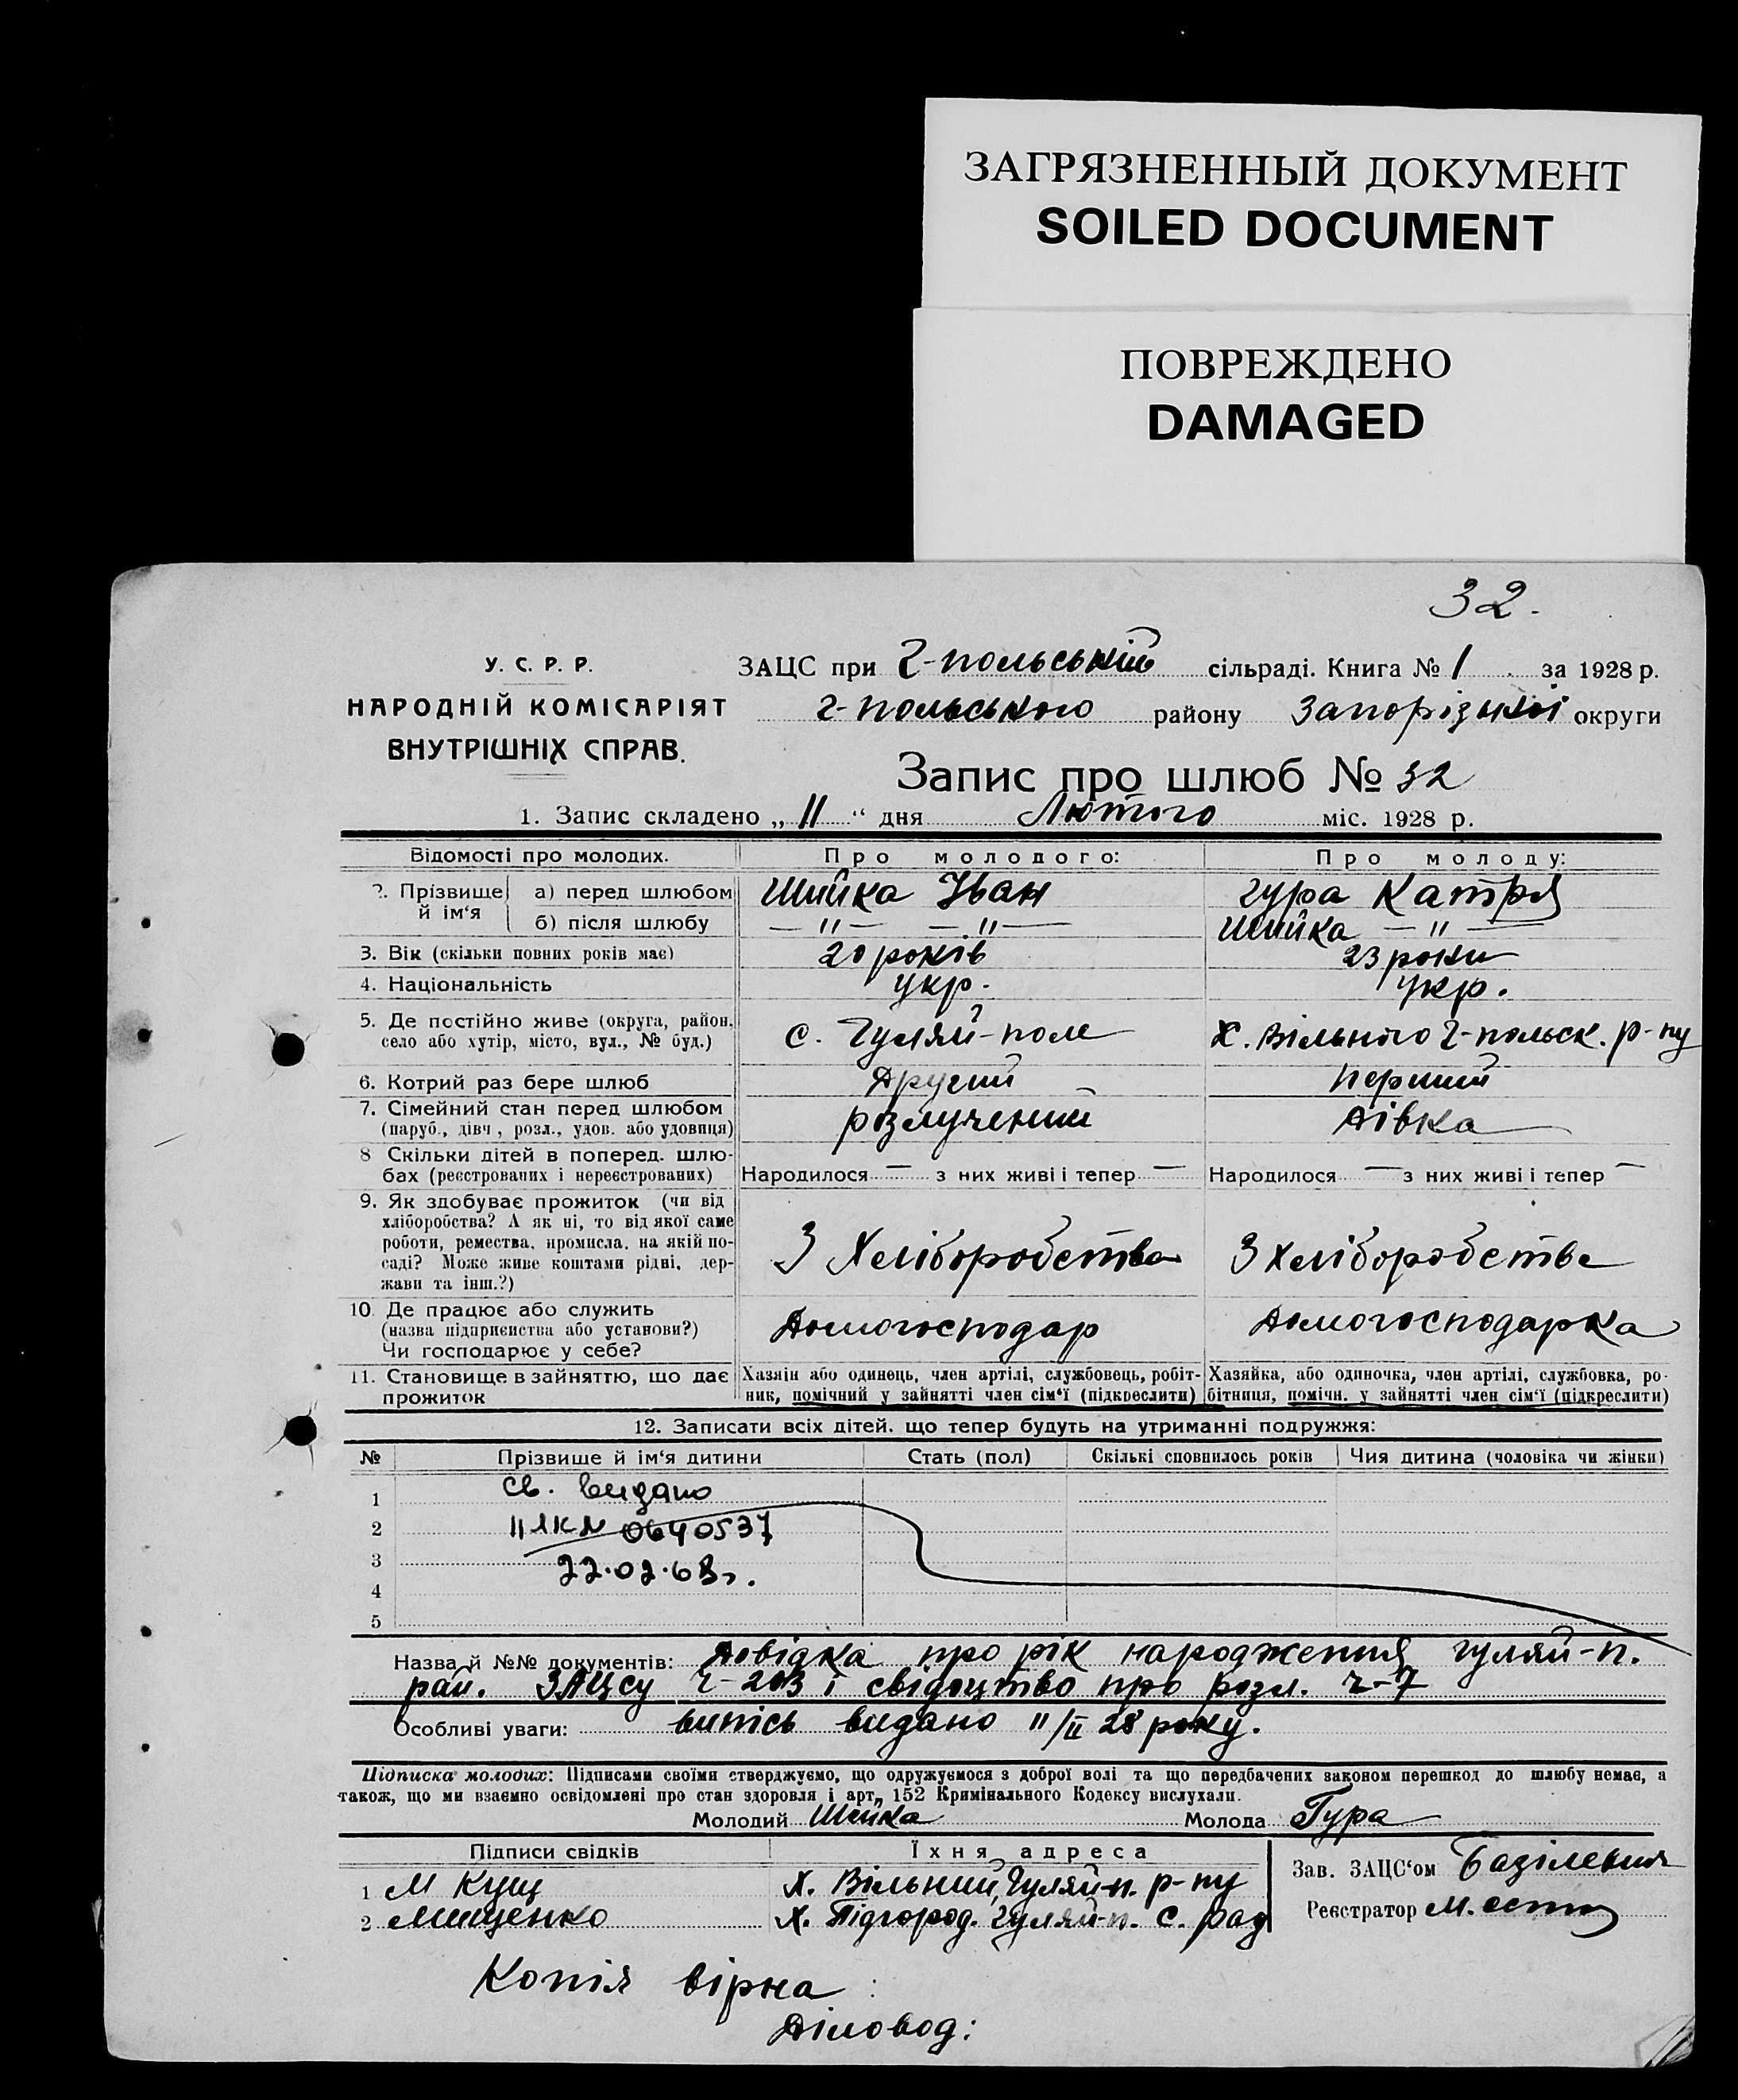 ЗАГРЯЗНЕННЫЙ ДОКУМЕНТ
SOILED DOCUMENT
ПОВРЕЖДЕНО
DAMAGED
32.
У. С. Р. Р.
НАРОДНІЙ КОМІСАРІЯТ
ВНУТРІШНІХ СПРАВ.
ЗАЦС при Г-польській сільраді. Книга № 1 за 1928 р.
Г-польського району Запорізької округи
Запис про шлюб № 32
1. Запис складено „ 11 “ дня Лютого міс. 1928 р.
Відомості про молодих. Про молодого: Про молоду:
2. Прізвище й ім‘я а) перед шлюбом Шийка Іван Гура Катря
б) після шлюбу — „ — — „ — Шийка — „ —
3. Вік (скільки повних років має) 20 років 23 роки
4. Національність укр. укр.
5. Де постійно живе (округа, район, село або хутір, місто, вул., № буд.) с. Гуляй-поле х. Вільного Г-польск. р-ну
6. Котрий раз бере шлюб Другий перший
7. Сімейний стан перед шлюбом (паруб., дівч., розл., удов. або удовиця) розлучений Дівка
8 Скільки дітей в поперед. шлюбах (реєстрованих і нереєстрованих) Народилося — з них живі і тепер — Народилося — з них живі і тепер —
9. Як здобуває прожиток (чи від
хліборобства? А як ні, то від якої саме
роботи, ремества, промисла, на якій посаді? Може живе коштами рідні, держави та інш.?) З Хліборобства З хліборобства
10. Де працює або служить
(назва підприємства або установи?)
Чи господарює у себе? Домогосподар Домогосподарка
11. Становище в зайняттю, що дає прожиток
Хазяїн або одинець, член артілі, службовець, робітник, помічний у зайнятті член сім‘ї (підкреслити)
Хазяйка, або одиночка, член артілі, службовка, робітниця, помічн. у зайнятті член сім‘ї (підкреслити)
12. Записати всіх дітей, що тепер будуть на утриманні подружжя:
№ Прізвище й ім‘я дитини Стать (пол) Скількі сповнилось років Чия дитина (чоловіка чи жінки)
1 Св. видано
2 № 0640537
3 22.02.68г.
4
5
Назва й №№ документів: Довідка про рік народження Гуляй-п.
рай. ЗАЦСу Ч-203 і свідоцтво про розл. ч-7
Особливі уваги: випісь видано 11/II 28 року.
Підписка молодих: Підписами своїми стверджуємо, що одружуємося з доброї волі та що передбачених законом перешкод до шлюбу немає, а
також, що ми взаємно освідомлені про стан здоровля і арт. 152 Кримінального Кодексу вислухали.
Молодий Шийка Молода Гура
Підписи свідків Їхня адреса
1 М Кущ х. Вільний, Гуляй-п. р-ну
2 Мищенко х. Підгород. Гуляй-п. с. рад
Зав. ЗАЦС‘ом Базілевич
Реєстратор
Копія вірна:
Діловод: